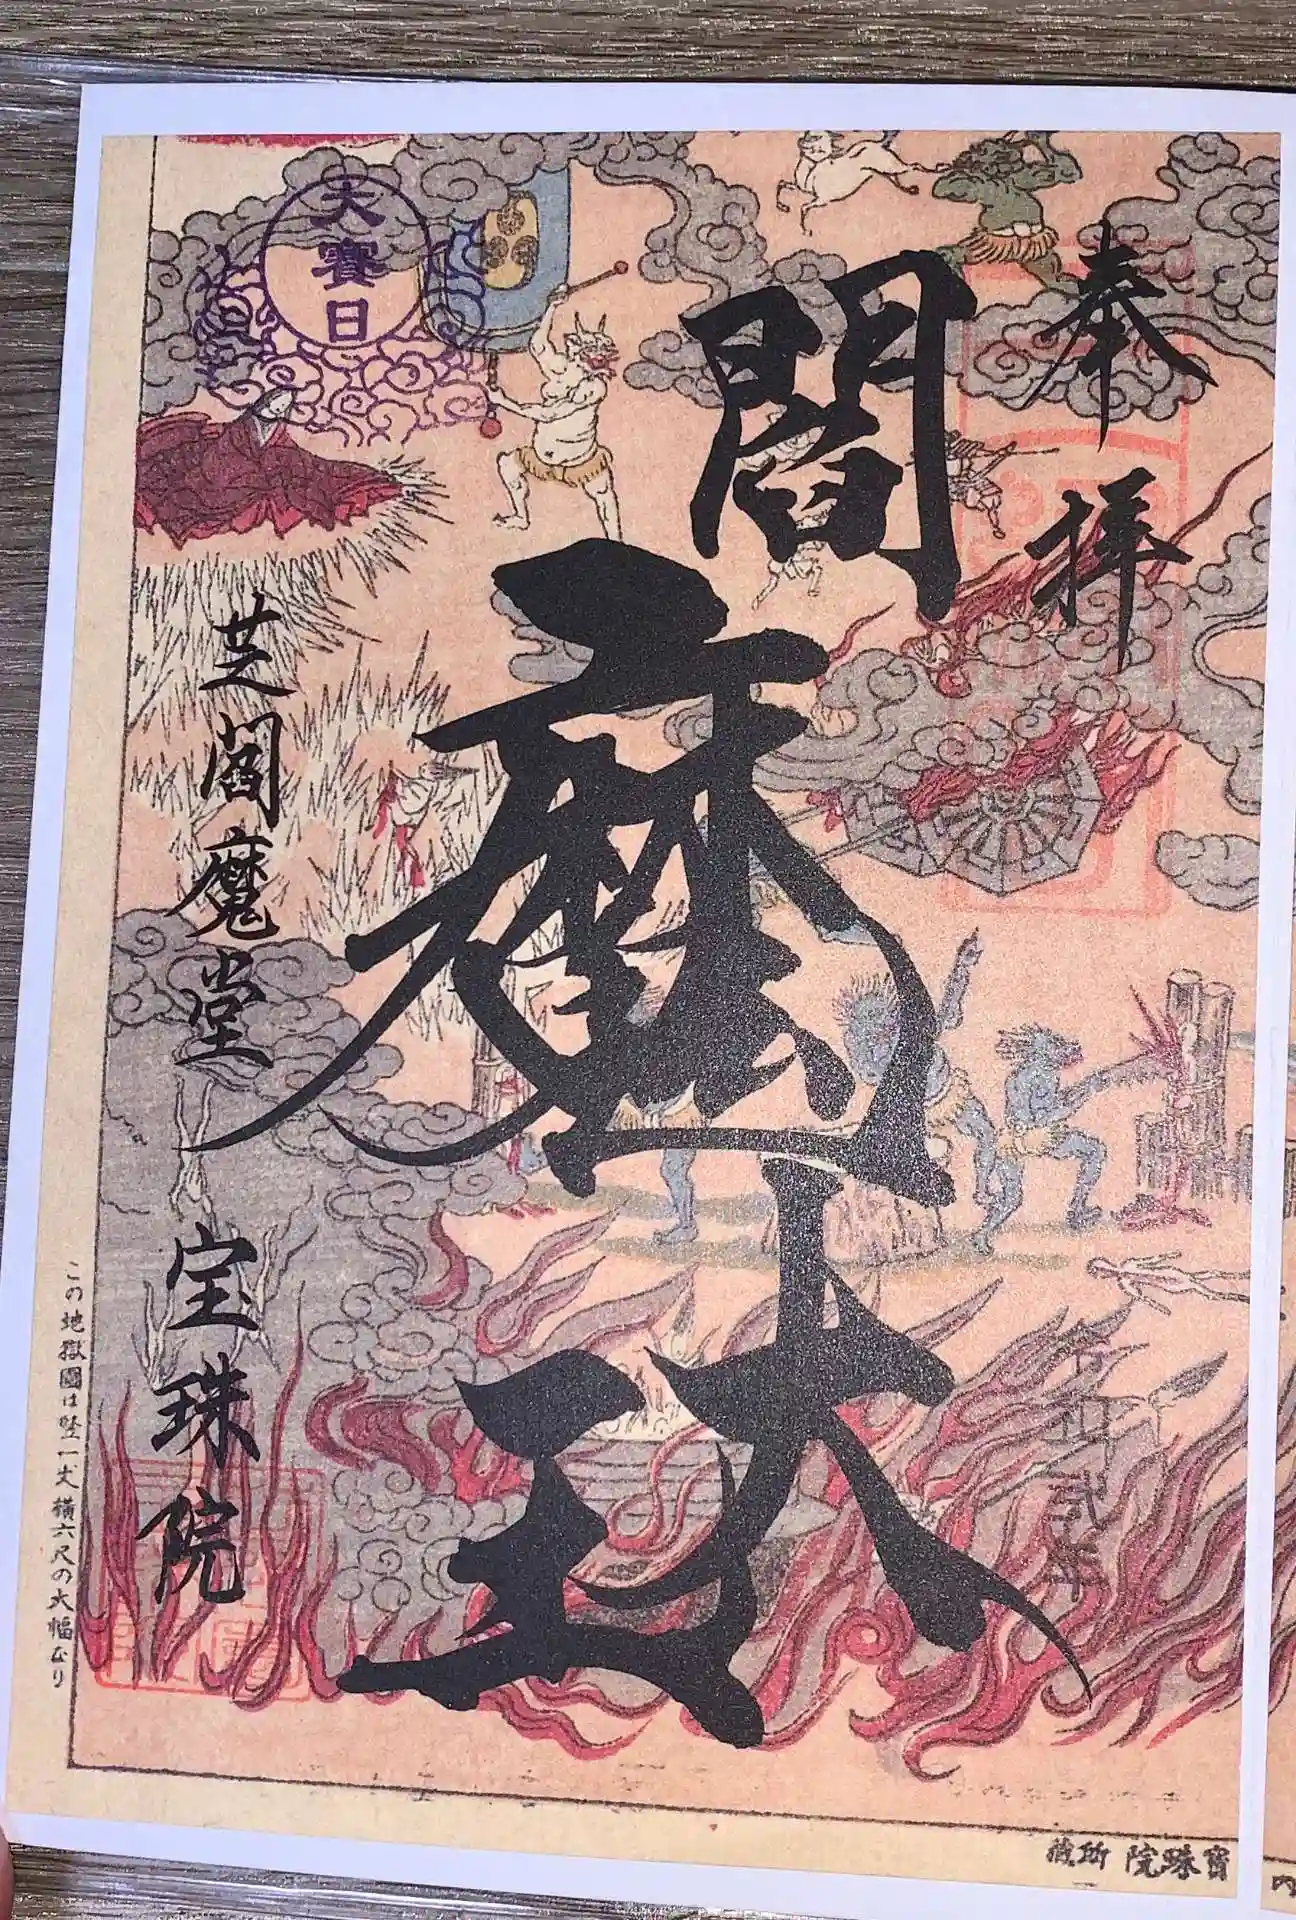 奉拝
閻魔王
大賽日
芝閻魔堂 宝珠院
この地獄圖は竪一丈横六尺の大幅なり
寶珠院所蔵
内